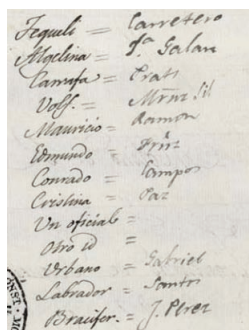 Tequeli = Carretero
Algelina = Sª Galan
Carrafa = Prats
Volf. = Mrnz Gil
Mauricio = Ramon
Edmundo = Frnz
Conrado = Campos
Cristina = Paz
Un oficial =
Otro id =
Urbano = Gabriel
Labrador = Santos
Bracifor. = J. Perez